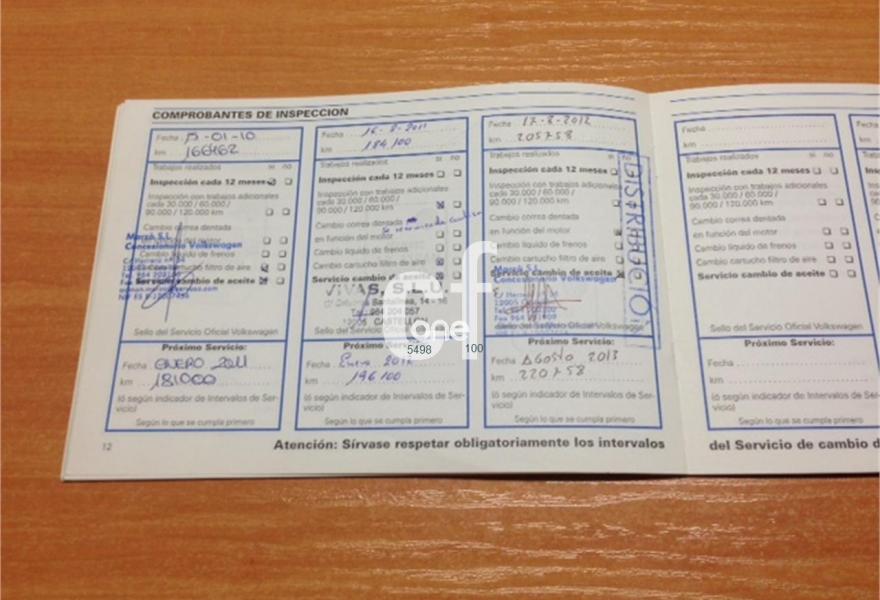 COMPROBANTES DE INSPECCION
Fecha 15-01-10
km 166162
Trabajos realizados si no
Inspección cada 12 meses
Inspección con trabajos adicionales
cada 30.000 / 60.000 /
90.000 / 120.000 km
Cambio correa dentada
en función del motor
Cambio líquido de frenos
Cambio cartucho filtro de aire
Servicio cambio de aceite
Marzá S.L.
Concesionario Volkswagen
Sello del Servicio Oficial Volkswagen
Próximo Servicio:
Fecha ENERO 2011
km 181000
(ó según indicador de Intervalos de Ser-
vicio)
Según lo que se cumpla primero
Fecha 16-2-2011
km 184100
Trabajos realizados si no
Inspección cada 12 meses
Inspección con trabajos adicionales
cada 30.000 / 60.000 /
90.000 / 120.000 km
Cambio correa dentada
en función del motor
Cambio líquido de frenos
Cambio cartucho filtro de aire
Servicio cambio de aceite
VIVAS, S.L.U.
Santallinea, 14-16
12005 CASTELLON
Sello del Servicio Oficial Volkswagen
Próximo Servicio:
Fecha Enero 2012
km 196100
(ó según indicador de Intervalos de Ser-
vicio)
Según lo que se cumpla primero
Fecha 17-8-2012
km 205758
Trabajos realizados si no
Inspección cada 12 meses
Inspección con trabajos adicionales
cada 30.000 / 60.000 /
90.000 / 120.000 km
Cambio correa dentada
en función del motor
Cambio líquido de frenos
Cambio cartucho filtro de aire
Servicio cambio de aceite
Marzá S.L.
Concesionario Volkswagen
DISTRIBUCIÓN
Sello del Servicio Oficial Volkswagen
Próximo Servicio:
Fecha AGOSTO 2013
km 220758
(ó según indicador de Intervalos de Ser-
vicio)
Según lo que se cumpla primero
Fecha
km
Trabajos realizados si no
Inspección cada 12 meses
Inspección con trabajos adicionales
cada 30.000 / 60.000 /
90.000 / 120.000 km
Cambio correa dentada
en función del motor
Cambio líquido de frenos
Cambio cartucho filtro de aire
Servicio cambio de aceite
Sello del Servicio Oficial Volkswagen
Próximo Servicio:
Fecha
km
(ó según indicador de Intervalos de Ser-
vicio)
Según lo que se cumpla primero
12
Atención: Sírvase respetar obligatoriamente los intervalos
del Servicio de cambio d
one
5498 100